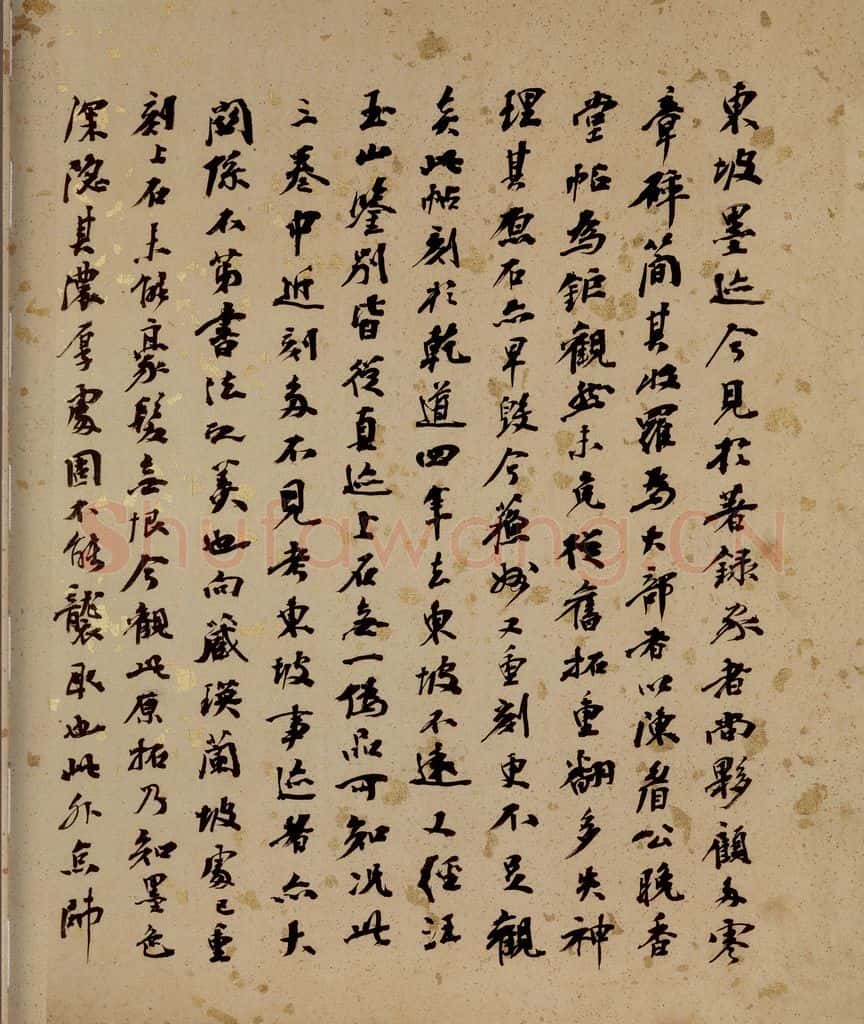 東坡墨迹今見於著錄家者尚夥顧多零
章碎簡其收羅為大部者以陳眉公晚香
堂帖為鉅觀然未免從舊拓重翻多失神
理其原石亦早毀今蘇州又重刻更不足觀
矣此帖刻於乾道四年去東坡不遠又經汪
玉山鑒別皆從真迹上石無一偽品可知況此
三卷中近刻多不見考東坡事迹者亦大
關係不第書法之美也向藏瑛蘭坡處已重
刻上石未能豪髮無恨今觀此原拓乃知墨色
深隱其濃厚處固不能襲取也此外亦師
Shufawang.CN